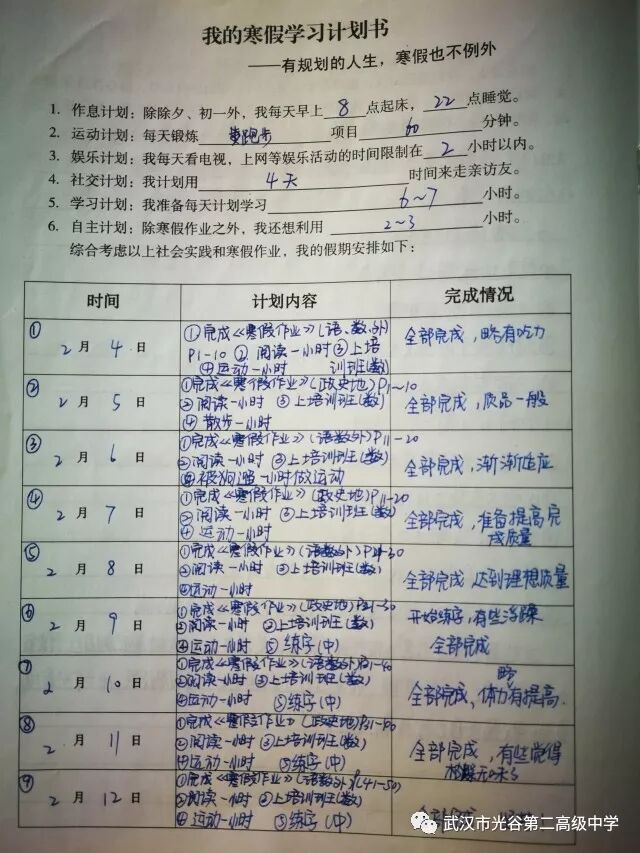 我的寒假学习计划书
——有规划的人生，寒假也不例外
1. 作息计划：除除夕、初一外，我每天早上 8 点起床，22 点睡觉。
2. 运动计划：每天锻炼 跑步 项目 60 分钟。
3. 娱乐计划：我每天看电视，上网等娱乐活动的时间限制在 2 小时以内。
4. 社交计划：我计划用 4天 时间来走亲访友。
5. 学习计划：我准备每天计划学习 6~7 小时。
6. 自主计划：除寒假作业之外，我还想利用 2~3 小时。
综合考虑以上社会实践和寒假作业，我的假期安排如下：
时间 计划内容 完成情况
① 2月4日
①完成《寒假作业》(语、数、外)
P1-10 ② 阅读一小时 ③上培
④运动一小时 训班(数)
全部完成，略有吃力
② 2月5日
①完成《寒假作业》(政史地)P1~10
②阅读一小时 ③上培训班(数)
④ 散步一小时
全部完成，质品一般
③ 2月6日
①完成《寒假作业》(语数外)P11-20
②阅读一小时 ③上培训班(数)
④被狗追一小时做运动
全部完成，渐渐适应
④ 2月7日
①完成《寒假作业》(政史地)P11-20
②阅读一小时 ③上培训班(数)
④ 运动一小时
全部完成，准备提高完
成质量
⑤ 2月8日
①完成《寒假作业》(语数外)P21-30
②阅读一小时 ③上培训班(数)
④运动一小时
全部完成 达到理想质量
⑥ 2月9日
①完成《寒假作业》(政史地)P21-30
②阅读一小时 ③上培训班(数)
④运动一小时 ⑤练字(中)
开始练字，有些浮躁
全部完成
⑦ 2月10日
①完成《寒假作业》(语数外)P31-40
②阅读一小时 ③上培训班(数)
④运动一小时 ⑤练字(中)
略
全部完成、体力有提高.
⑧ 2月11日
①完成《寒假作业》(政史地)P31-40
②阅读一小时 ③上培训班(数)
④运动一小时 ⑤练字(中)
全部完成，有些觉得
⑨ 2月12日
①完成《寒假作业》(语数外)P(41-50)
②阅读一小时 ③上培训班(数)
④ 运动一小时 ⑤练字(中)
全部完成
武汉市光谷第二高级中学